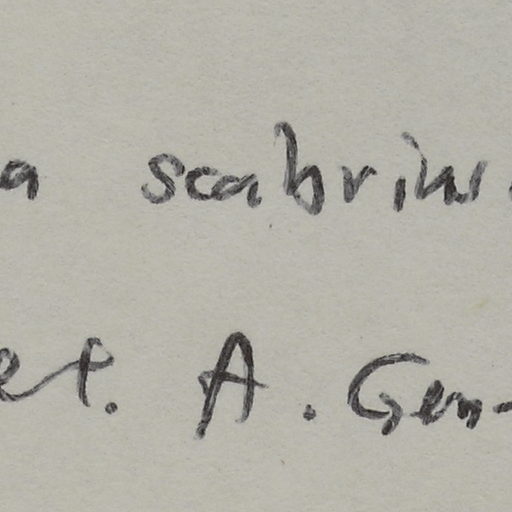 a scabrius
et. A. Gen-